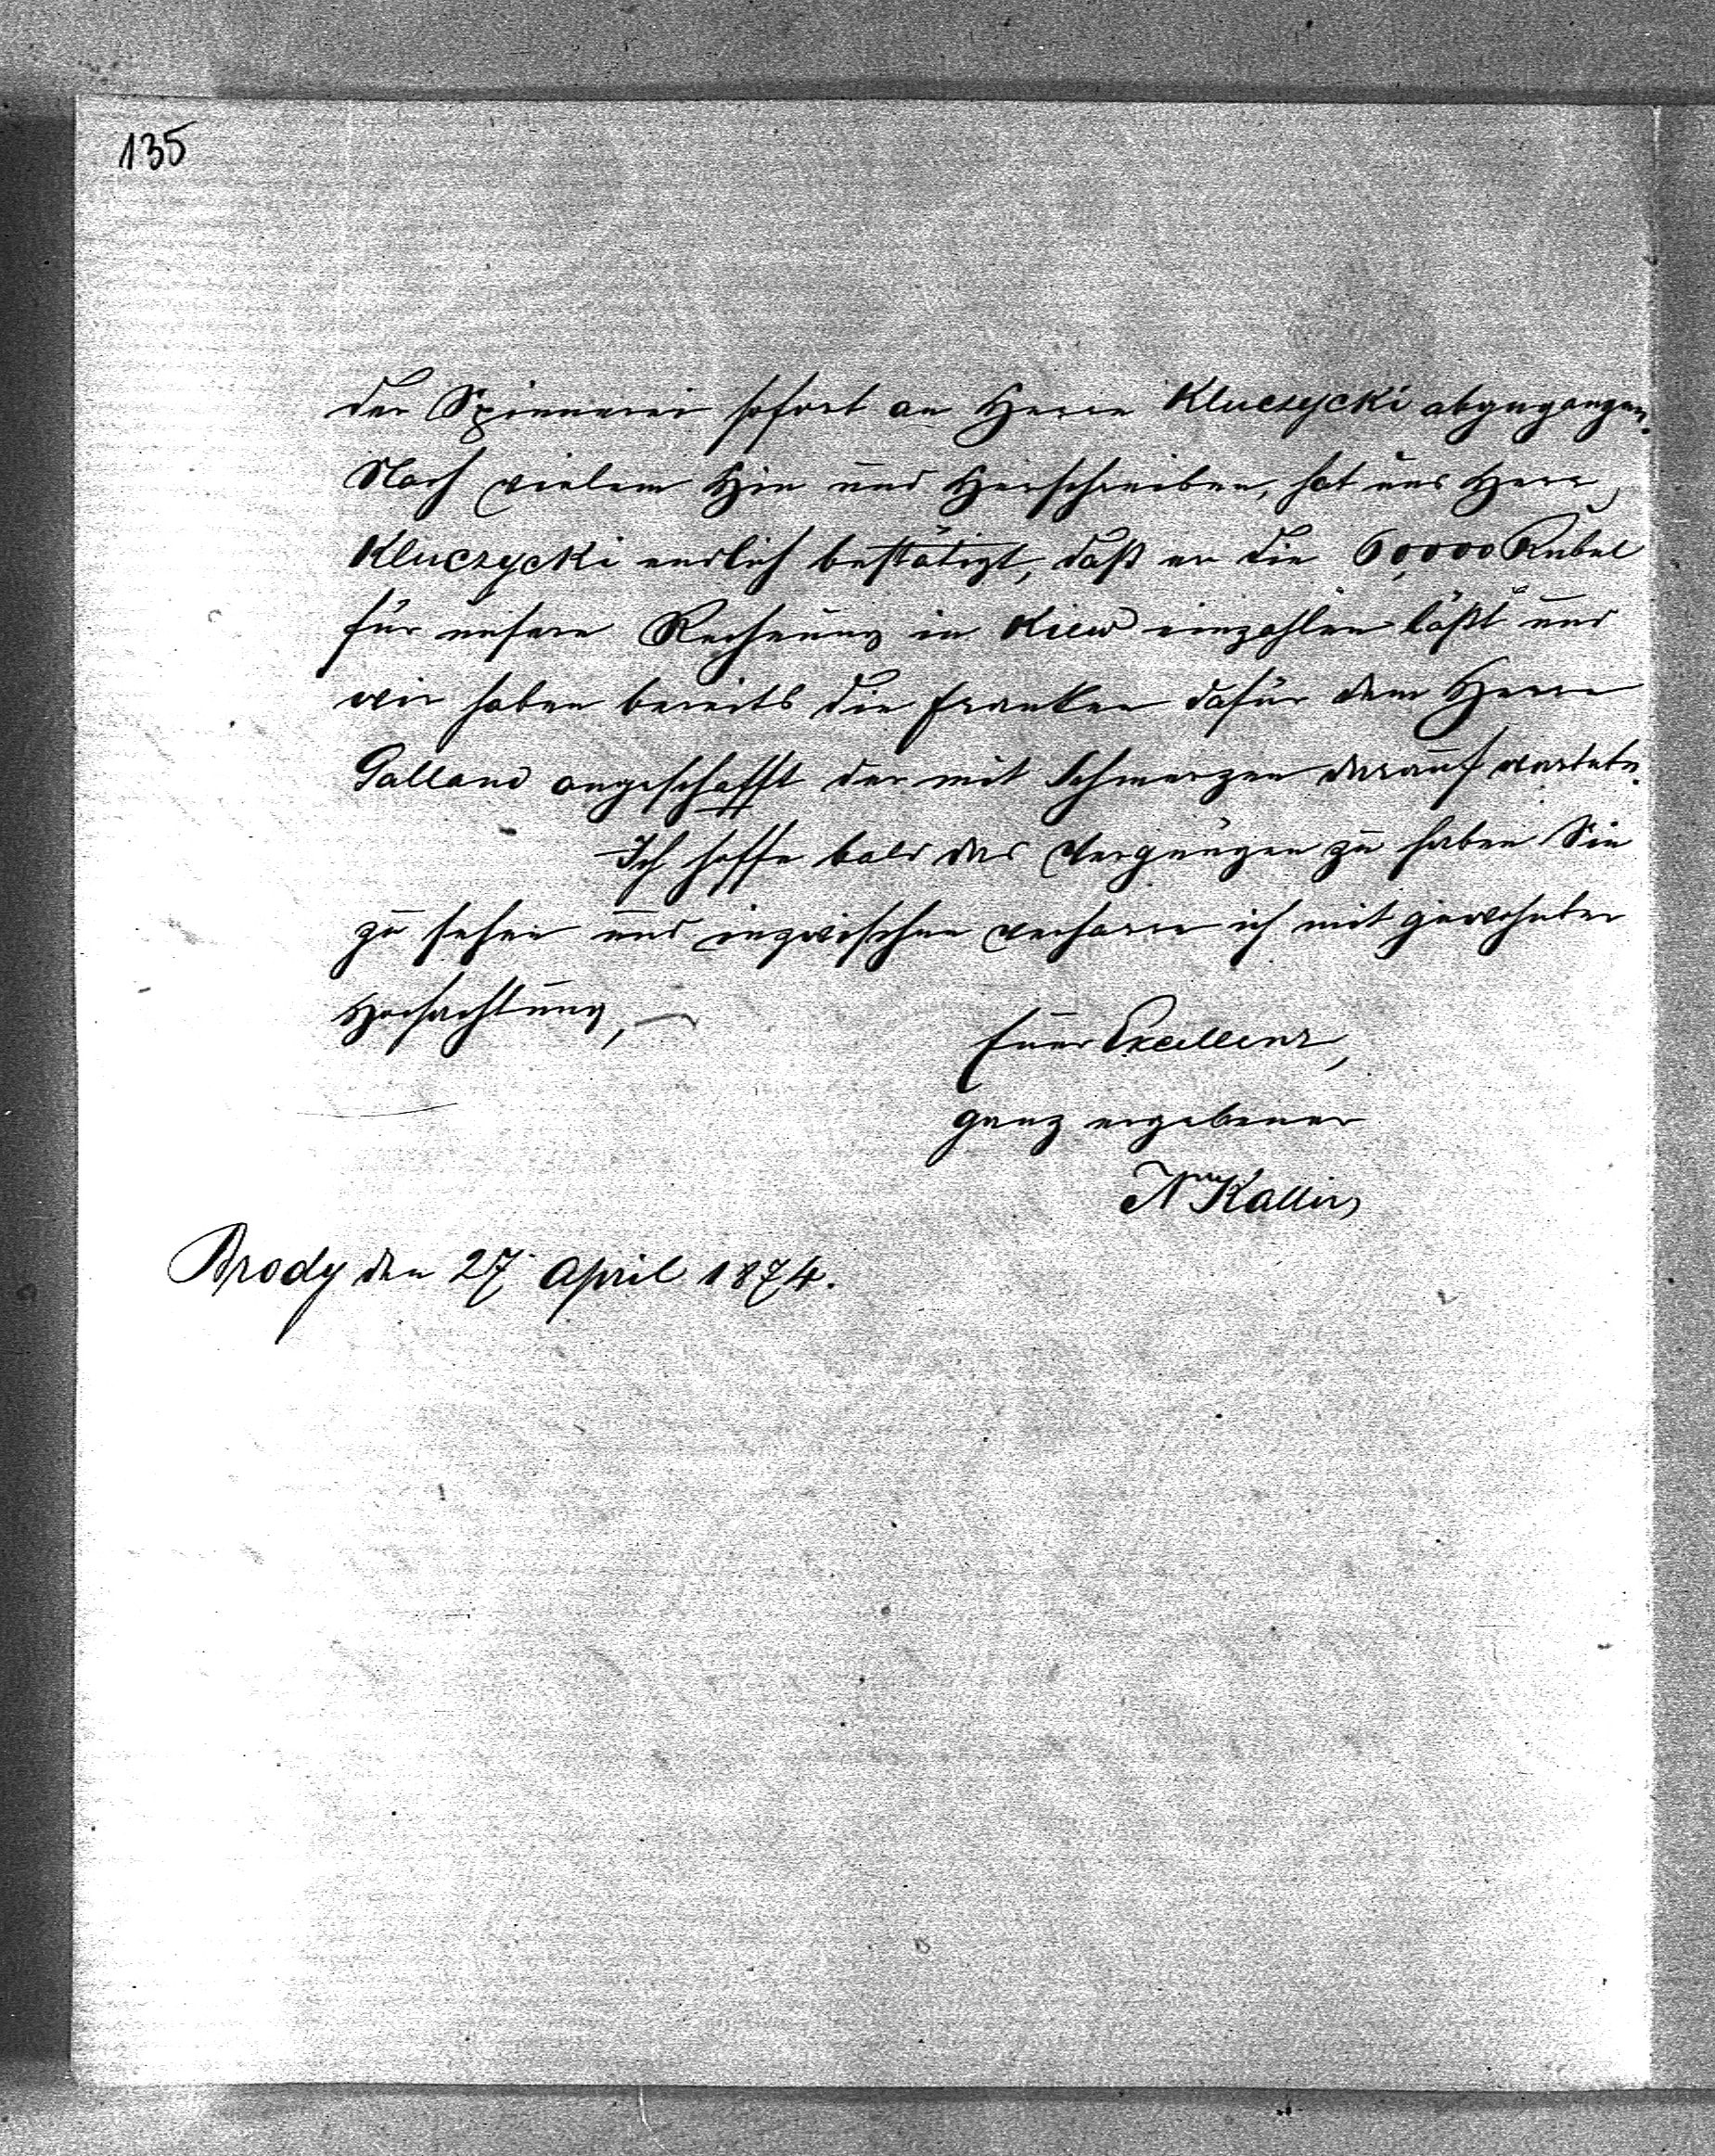 135
der Spinnerei sofort an Herrn Kluczycki abgegangen.
Nach vielem Hin und Herschreiben, hat uns Herr
Kluczycki endlich bestätigt, daß er die 60,000 Rubel
für unsere Rechnung in Kiew einzahlen läßt und
wir haben bereits die Franken dafür dem Herrn
Galland angeschafft der mit Schmerzen darauf wartete.
Ich hoffe bald das Vergnügen zu haben Sie
zu sehen und inzwischen verharre ich mit gewohnter
Hochachtung,
Euer Excellenz,
ganz ergebener
Kallir
Brody den 27 April 1874.